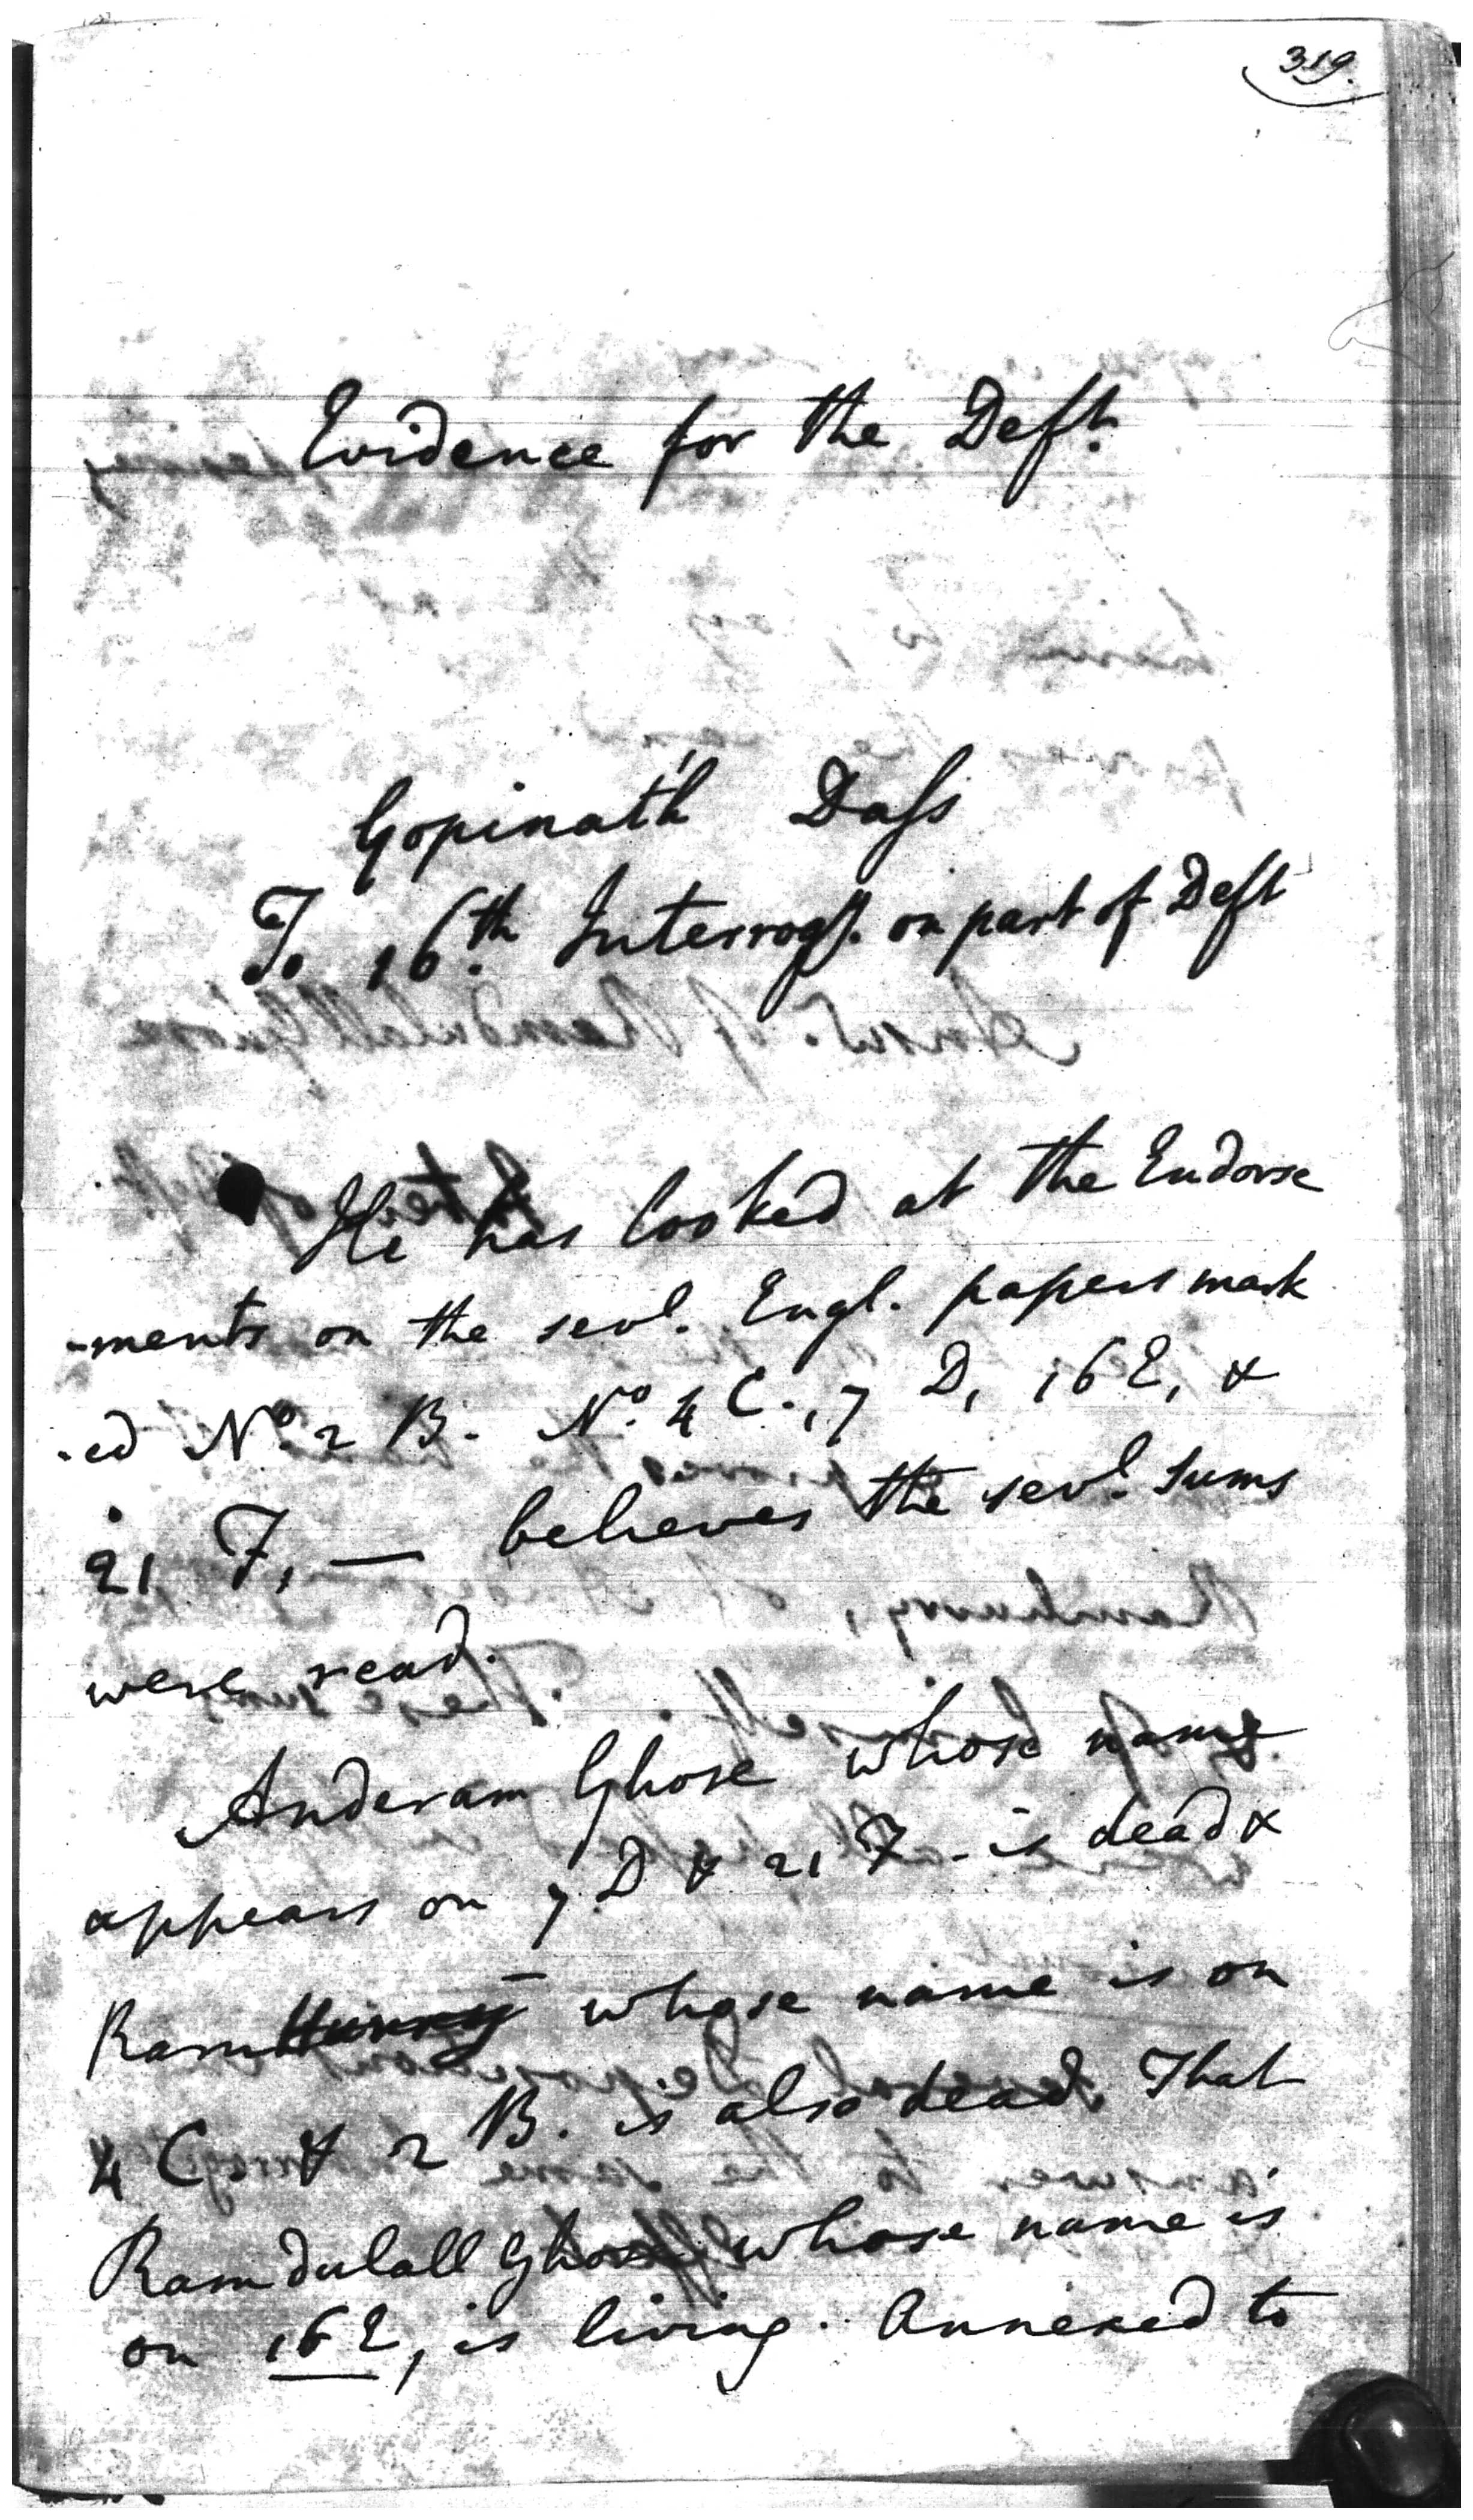 319.
Evidence for the Deft.
Gopinath Dass
To 16.th Interrogy. on part of Deft
He has looked at the Endorse
-ments on the sevl. Engl. papers mark
-ed No. 2 B. No. 4 C., 7 D, 16 E, &
21 F, — believes the sevl. sums
were read.
Anderam Ghose whose name
appears on 7 D & 21 F - is dead &
Ram Hurry whose name is on
4 C & 2 B. is also dead. That
Ramdulall Ghose whose name is
on 16 E, is living. Annexed to